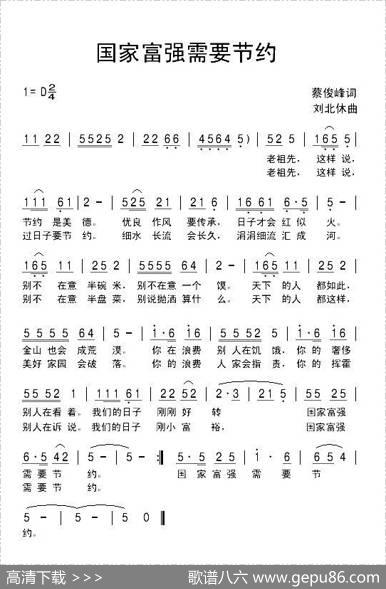 国家富强需要节约
1=D 2/4
蔡俊峰词
刘北休曲
11 22 | 5525 2 | 22 66 | 4564 5) | 525 5 | 165 5 |
老祖先， 这样 说，
老祖先， 这样 说，
111 61 | 2 - | 525 21 | 21 6 | 16 61 6·5 | 5 - |
节约 是美 德。 优良 作风 要传承， 日子才会 红 似 火。
过日子要节 约。 细水 长流 会长久， 涓涓细流 汇 成 河。
165 11 | 25 2 | 55 55 64 | 2 - | 165 11 | 25 2 |
别不 在意 半碗 米， 别不在意一个 馍。 天下 的人 都如此，
别不 在意 半盘 菜， 别说抛洒算什 么。 天下 的人 都这样，
55 55 64 | 5 - | 1·6 16 | 55 52 5 | 1·6 16 |
金山 也会 成荒 漠。 你 在 浪费 别 人在 饥 饿， 你 的 奢侈
美好 家园 会破 落。 你 在 浪费 人 家会 指 责， 你 的 挥霍
55 52 1 | 111 61 | 22 52 | 2·3 | 21 5 | 55 25 |
别人在看 着。 我们的日子 刚刚 好 转 国家富强
别人在诉 说。 我们的日子 刚小 富 裕， 国家富强
6·5 42 | 5 - :‖ 5·5 25 | 25 25 | 1· 6 | 16 5 |
需 要节 约。 国 家 富强 需 要 节
需 要节 约。
5 - | 5 - | 5 0 ‖
约。
高清下载 >>>
歌谱八六 www.gepu86.com